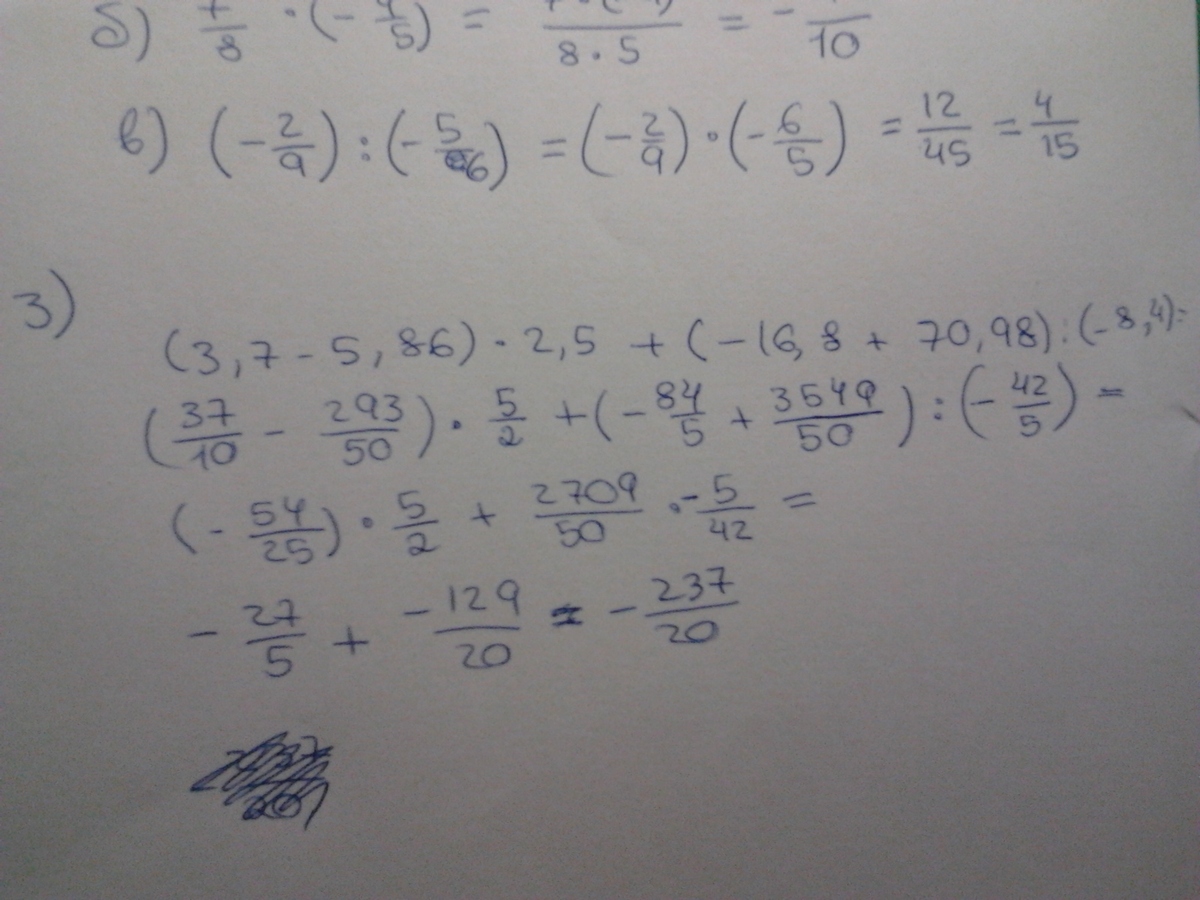 б) /8 · (- /5) = /8 · 5 = - /10
в) (-2/9) : (-5/6) = (-2/9) · (-6/5) = 12/45 = 4/15
3)
(3,7 - 5,86) · 2,5 + (-16,8 + 70,98) : (-8,4) =
(37/10 - 293/50) · 5/2 + (-84/5 + 3549/50) : (-42/5) =
(-54/25) · 5/2 + 2709/50 · -5/42 =
-27/5 + -129/20 = -237/20